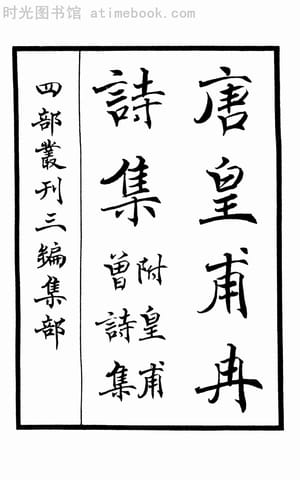 时光图书馆 atimebook.com
唐皇甫冉
詩集
附皇甫
曾詩集
四部叢刊三編集部